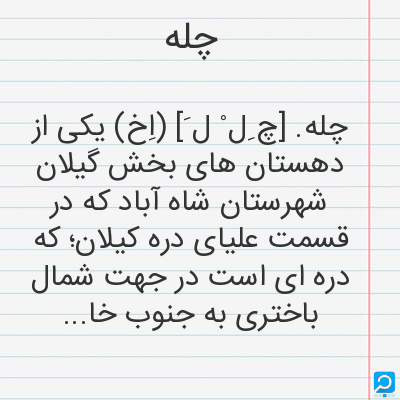 چله
چله. [چ ِ ل ْ ل َ] (اِخ) یکی از
دهستان های بخش گیلان
شهرستان شاه آباد که در
قسمت علیای دره کیلان؛ که
دره ای است در جهت شمال
باختری به جنوب خا...